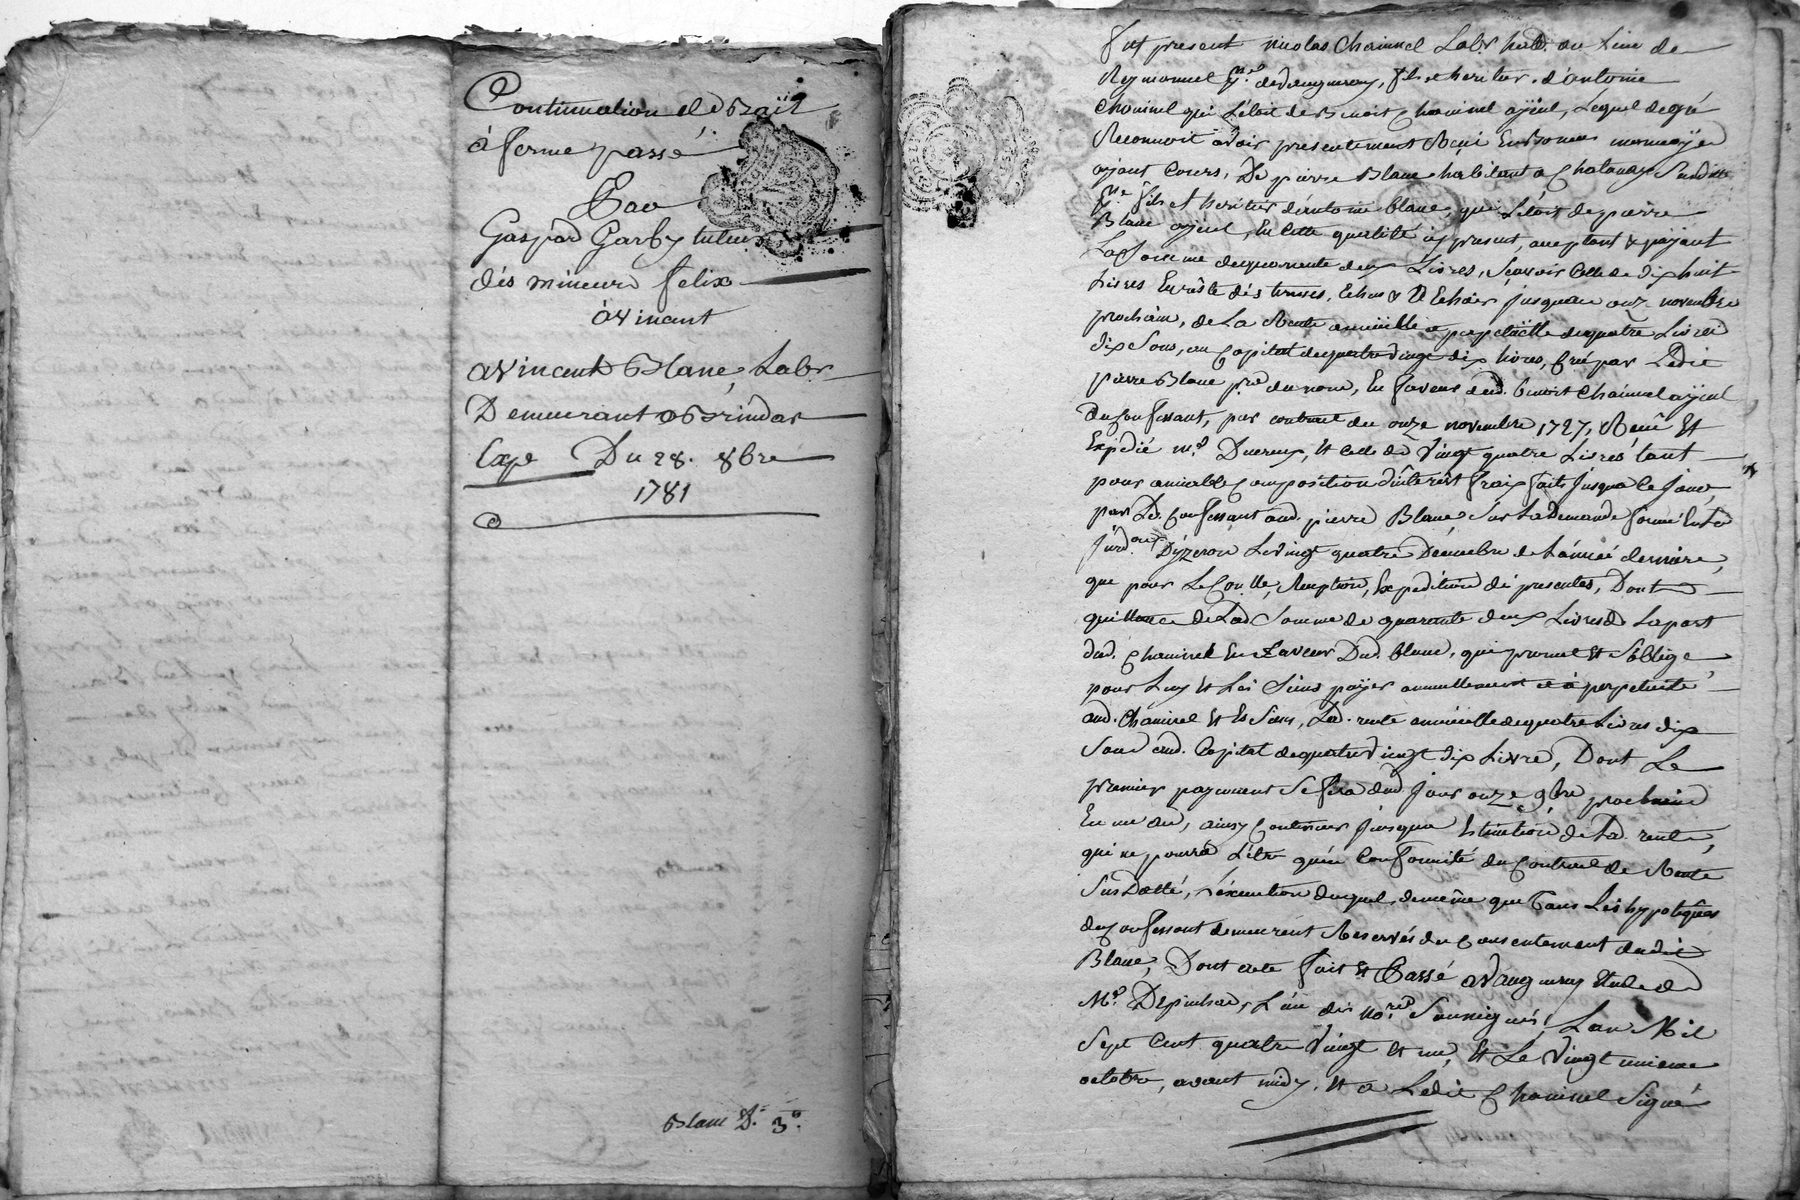 Continuation de Bail
à ferme passé
Par
Gaspard Garby tuteur
dés mineurs felix
à vincent
a vincent Blanc, Labr
Demeurant a Brindas
Exp Du 28. 8bre
1781
Blanc D. 3°.
fut present nicolas Chaininel Labr habt. au lieu de
Reymonnel de Vaugneray, fils et heritier d'antoine
Chaininel qui L'étoit de Benoit Chaininel ayeul, Lequel de gré
Reconnoit avoir presentement Reçu En Bonnes monnoyes
ayant Cours, De pierre Blanc habitant a Susdite
fils et heritier d'antoine blanc, qui L'étoit de pierre
Blanc ayeul, En cette qualité icy present, acceptant & payant
La Somme de quarente deux Livres, Sçavoir Celle de dix huit
Livres En reste dés termes, Echus & a Echoir jusquau onze novembre
prochain, de La Rente annuelle et perpetuelle de quatre Livres
dix Sous, au Capital de quatre vingt dix livres, Créé par Ledit
pierre Blanc pr. du nom, En faveur dud. benoit Chaininel ayeul
du Confessant, par contract du onze novembre 1727, Reçu Et
Expédié Me. Et Celle de Vingt quatre Livres tant
pour amiable Composition d'interest frais faits jusqua Ce jour,
par Led. Confessant aud. pierre Blanc Sur La Demande formée En La
jurdon. D'yzeron Le vingt quatre Decembre de L'année derniere,
que pour Le Conlle, Reception, Expedition dés presentes, Dont
quittance de Lad. Somme de quarente deux Livres de La part
dud. Chaininel En Faveur Dud. blanc, qui promet Et S'oblige
pour Luy Et Les Siens payer annuellement et à perpetuité
aud. Chaininel Et Es Siens, Lad. rente annuelle de quatre Livres dix
Sous aud. Capital de quatre vingt dix Livres, Dont Le
premier payement Se fera dud. jour onze 9bre prochain
En un an, ainsy Continuer jusqua Extinction de Lad. rente,
qui ne pourra L'etre qu'en Conformité du Contract de Rente
Sus Datté, L'éxécution duquel, de même que Tous Les hypotéques
du Confessant demeurent Reservés du Consentement dudit
Blanc, Dont acte fait Et Passé a Vaugneray Etude de
Me. L'un dés nores. Soussignés, L'an Mil
Sept Cent quatre Vingt et un, Et Le Vingt unieme
octobre, avant midy, Et a Ledit Chaininel Signé